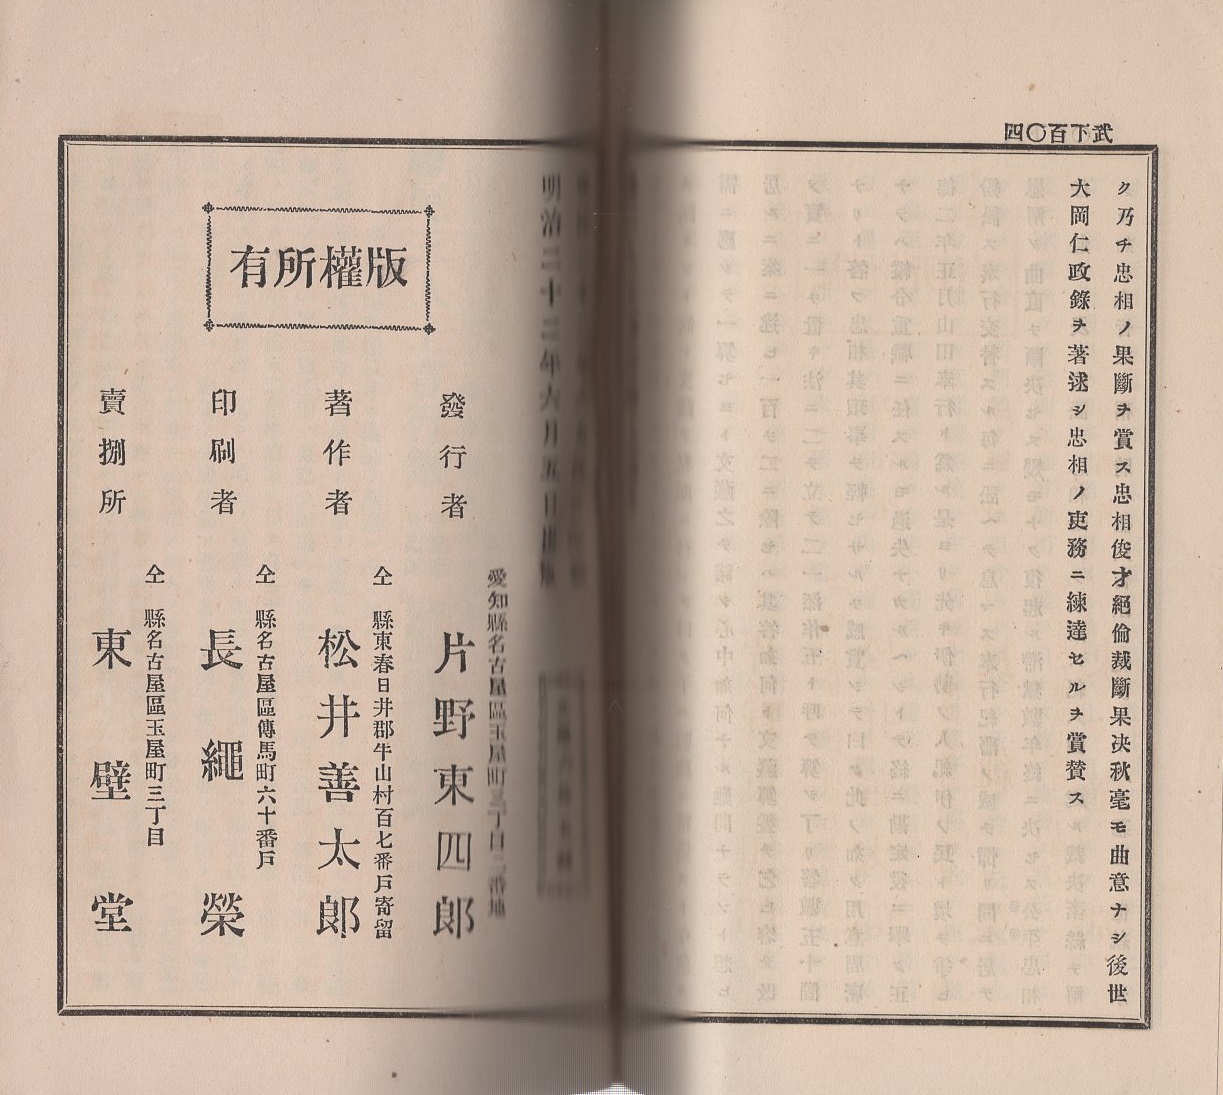 武下百〇四
ク乃チ忠相ノ果斷ヲ賞ス忠相俊才絕倫裁斷果决秋毫モ曲意ナシ後世
大岡仁政錄ヲ著逑シ忠相ノ吏務ニ練達セルヲ賞賛ス
明治二十二年六月五日出版
版權所有
發行者
愛知縣名古屋區玉屋町三丁目二番地
片野東四郎
著作者
仝縣東春日井郡牛山村百七番戶寄留
松井善太郎
印刷者
仝縣名古屋區傳馬町六十番戶
長繩榮
賣捌所
仝縣名古屋區玉屋町三丁目
東壁堂